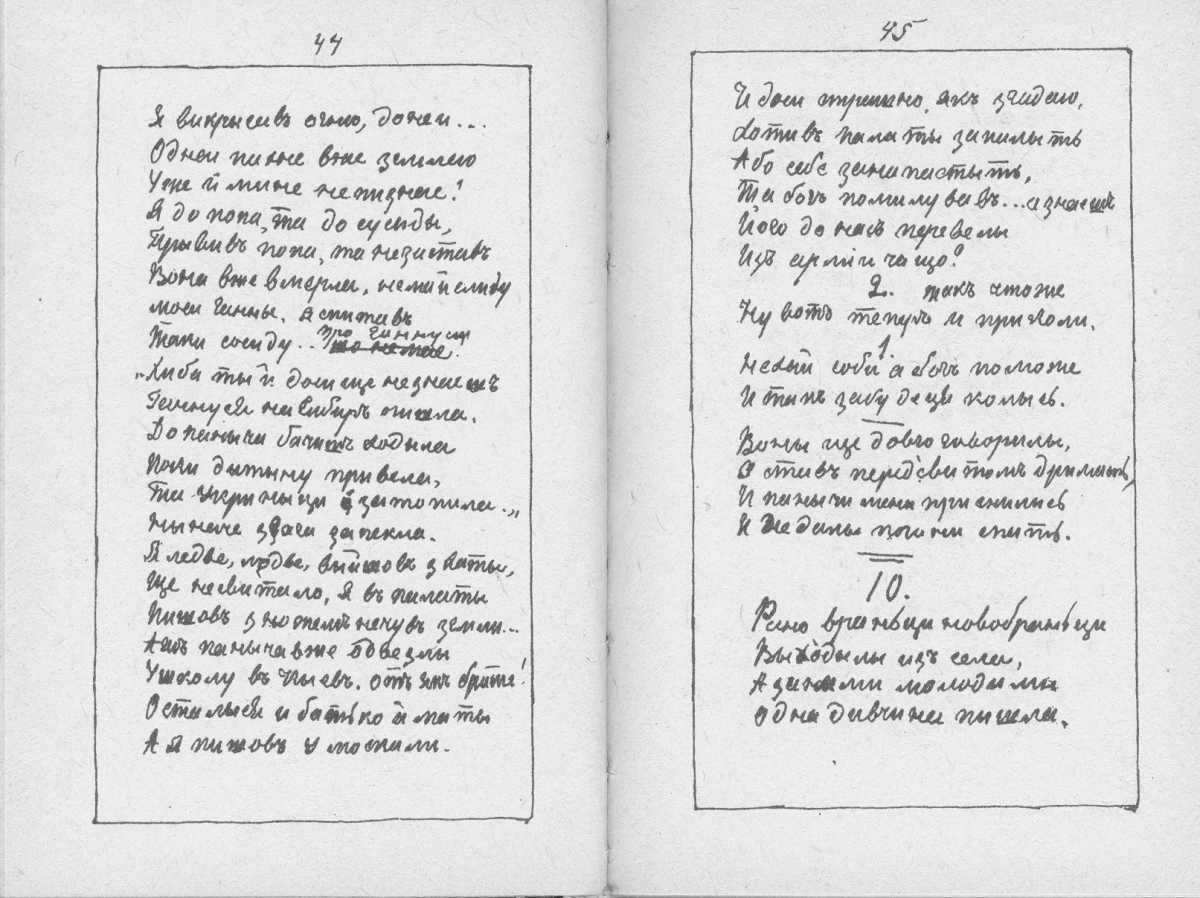 44
Я викрысавъ огню, до неи...
Одъ неи пахне вже землею
Уже й мине не пизнае!
Я до попа, та до сусиды,
Прывивъ попа, та незаставъ
Вона вже вмерла, нема и слиду
моеи Ганны. я спитавъ
Таки сосиду.. про ганнусю
"Хиба ты й доси ще незнаешъ
Ганнуся на Сибирь пишла.
До паныча бачишъ ходыла
Поки дытыну привела,
Та укрыныци и затопила."
Ныначе згага запекла.
Я ледве, ледве, выйшовъ з хаты,
Ще несвитало, я въ палаты
Пишовъ з ножемъ нечувъ земли...
Ажъ паныча вже одвезли
Ушколу въ Кыевъ. отъ якъ брате!
Осталыся и батько й маты
А я пишовъ у москали.
45
И доси страшно, якъ згадаю,
Хотивъ палаты запалыть
Або себе занапастыть,
Та богъ помилувавъ... а знаешъ
Його до насъ перевелы
Изъ армии чащо?
2. такъ что же
Ну вотъ теперь и приколи.
1.
Нехай соби а богъ поможе
И такъ забудеця колысь.
Воны ще довго говорилы,
Я ставъ передъ свитомъ дримать,
И панычи мени приснились
И не далы погани спать.
10.
Рано вранъци новобранъци
Выходылы изъ села,
А за ними молодыми
Одна дивчина пишла.